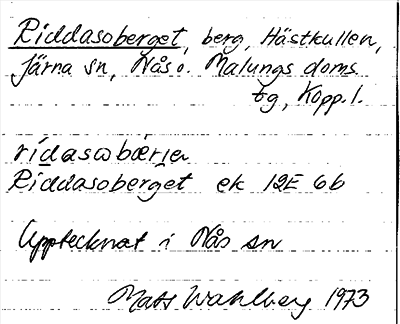 Riddasoberget, berg, Hästkullen,
Järna sn, Nås o. Malungs doms.
tg, Kopp.l.
rídasωbærjeṛ
Riddasoberget ek 12E 6b
Upptecknat i Nås sn
Mats Wahlberg 1973